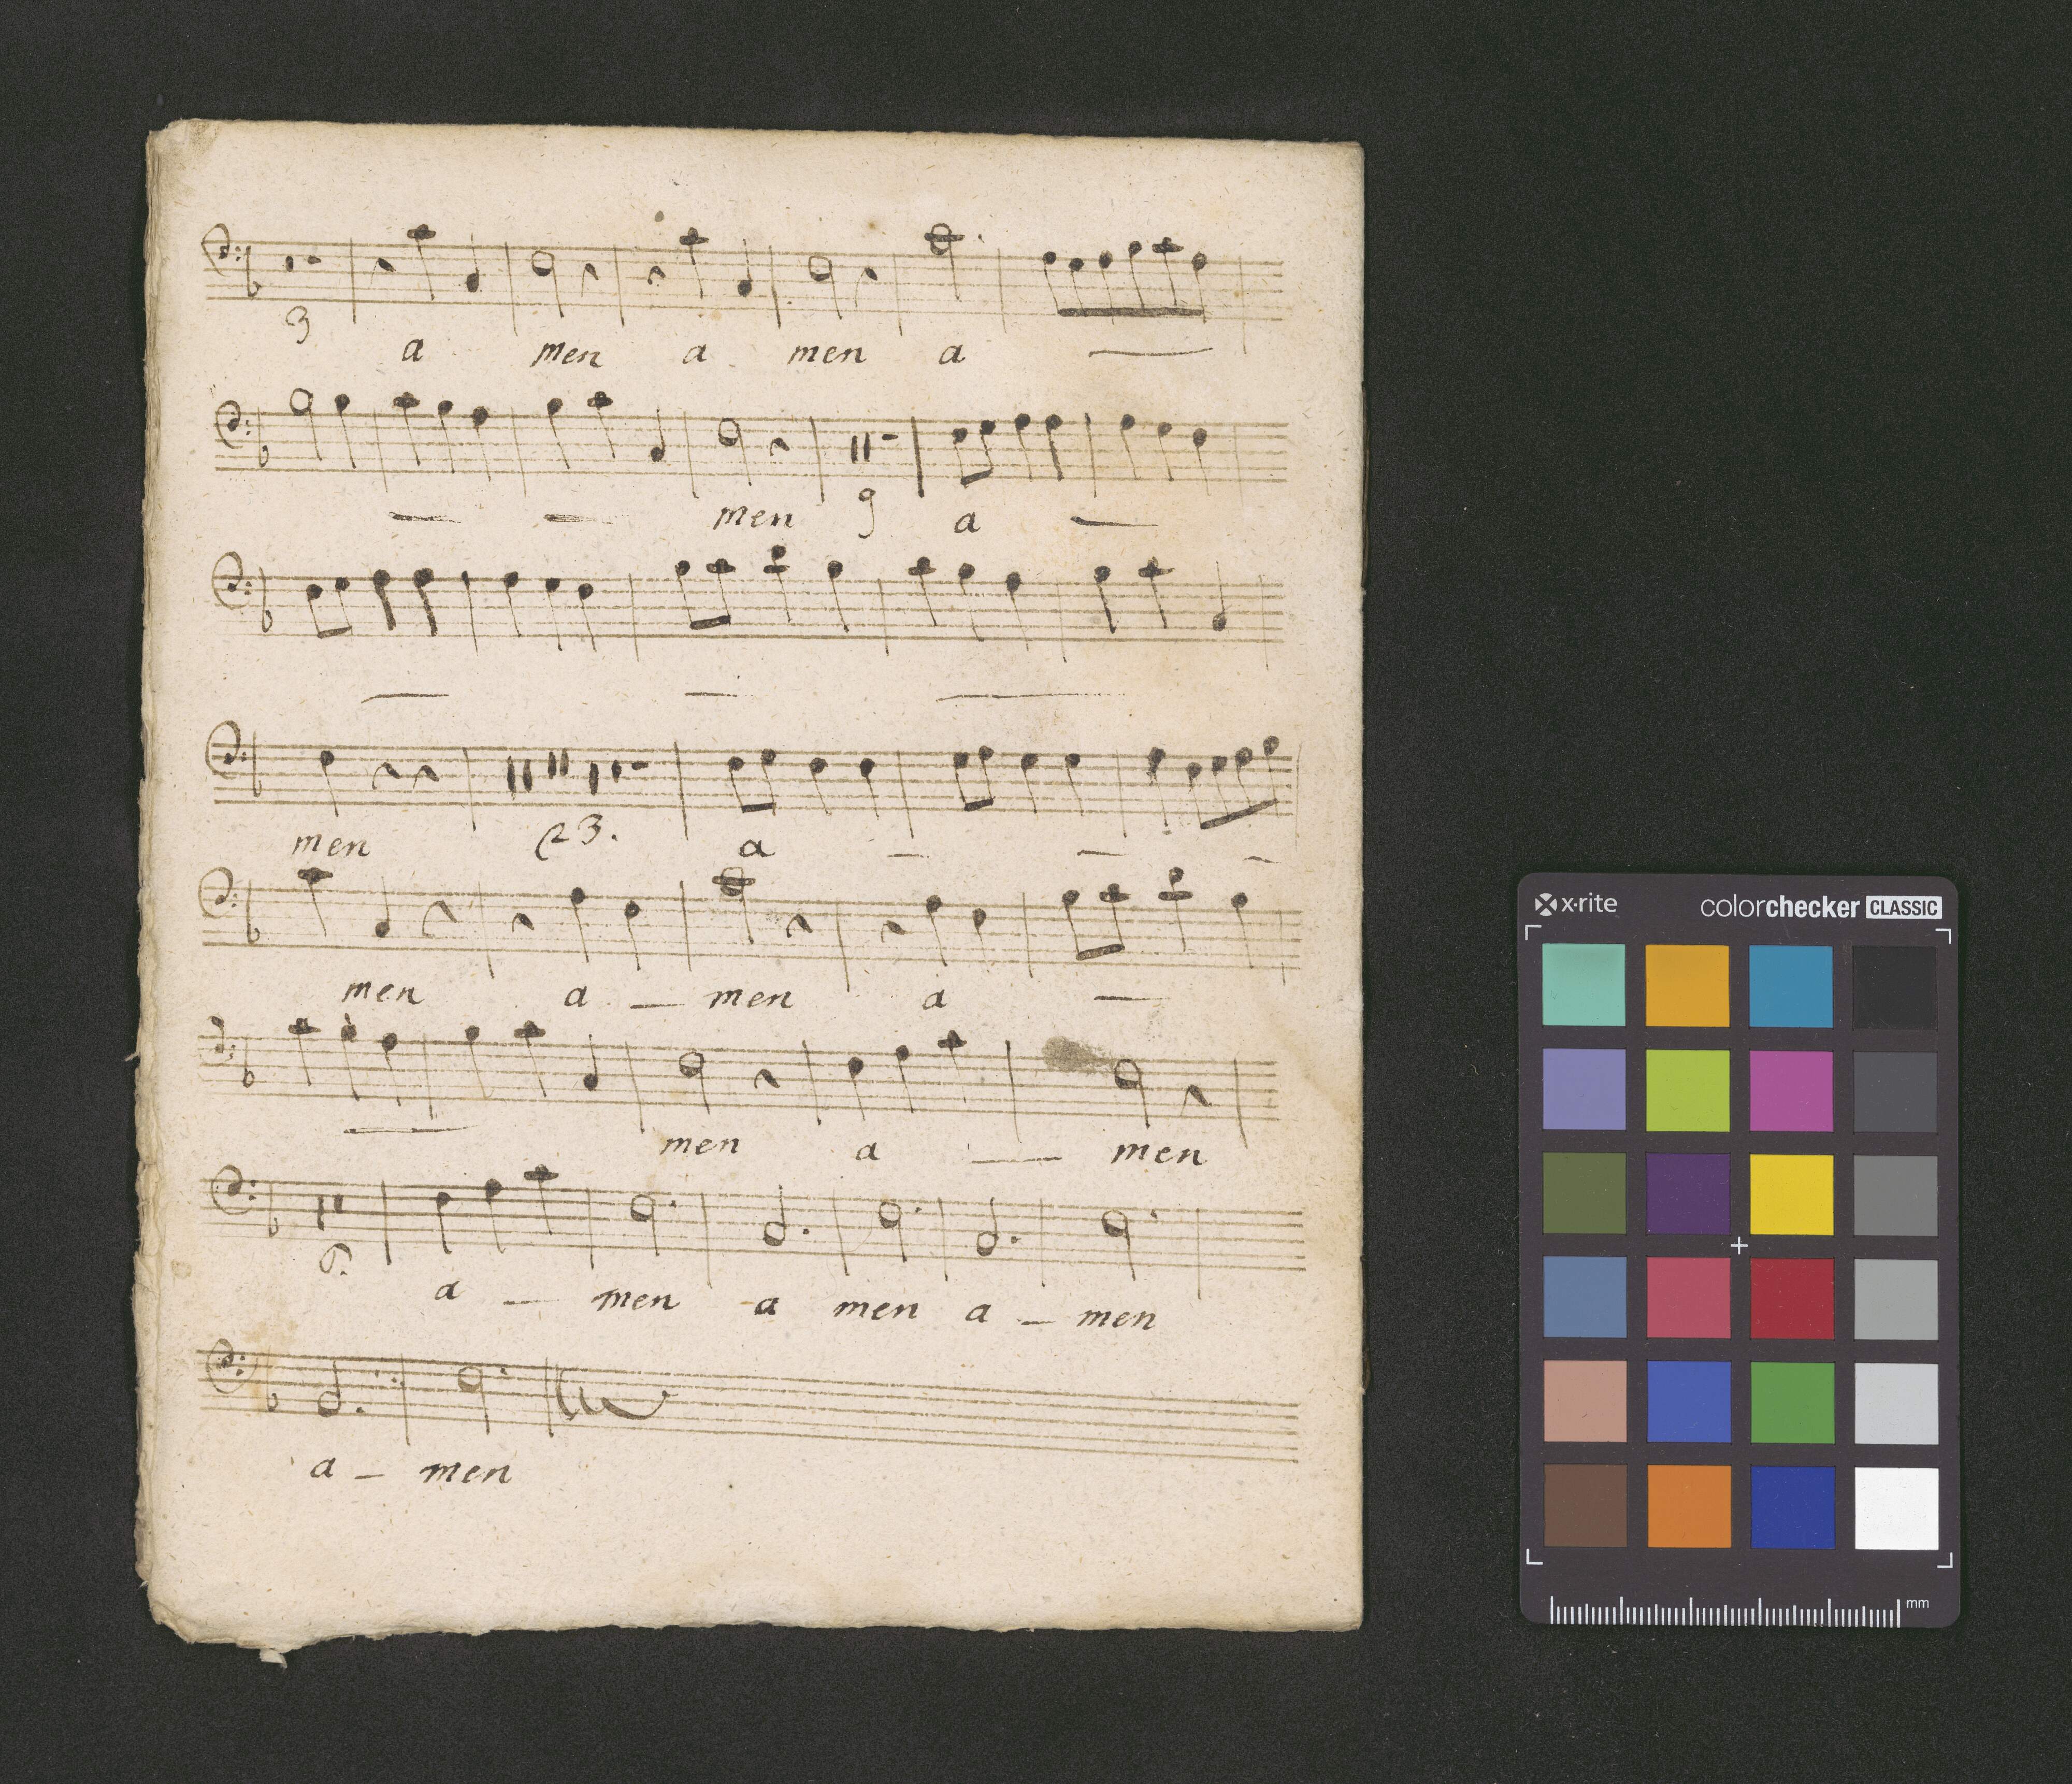 3
a men a men a
men 9 a
men 23. a
men a — men a
men a — men
6.
a — men a men a — men
a — men
x·rite colorchecker CLASSIC
mm